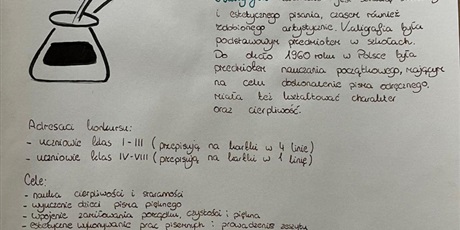 i estetycznego pisania, czasem również
zdobionego artystycznie. Kaligrafia była
podstawowym przedmiotem w szkołach.
Do około 1960 roku w Polsce była
przedmiotem nauczania początkowego, mającym
na celu doskonalenie pisma odręcznego,
miała też kształtować charakter
oraz cierpliwość.
Adresaci konkursu:
- uczniowie klas I-III (przepisują na kartki w 4 linie)
- uczniowie klas IV-VIII (przepisują na kartki w 1 linię)
Cele:
- nauka cierpliwości i staranności
- wyuczenie dzieci pisma pięknego
- wpojenie zamiłowania porządku, czystości i piękna
- estetyczne wykonywanie prac pisemnych i prowadzenie zeszytu